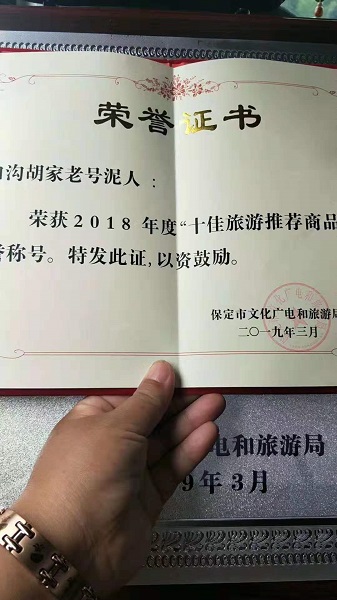 荣誉证书
沟胡家老号泥人：
荣获2018年度“十佳旅游推荐商品
称号。特发此证，以资鼓励。
保定市文化广电和旅游局
二〇一九年三月
电和旅游局
9年3月